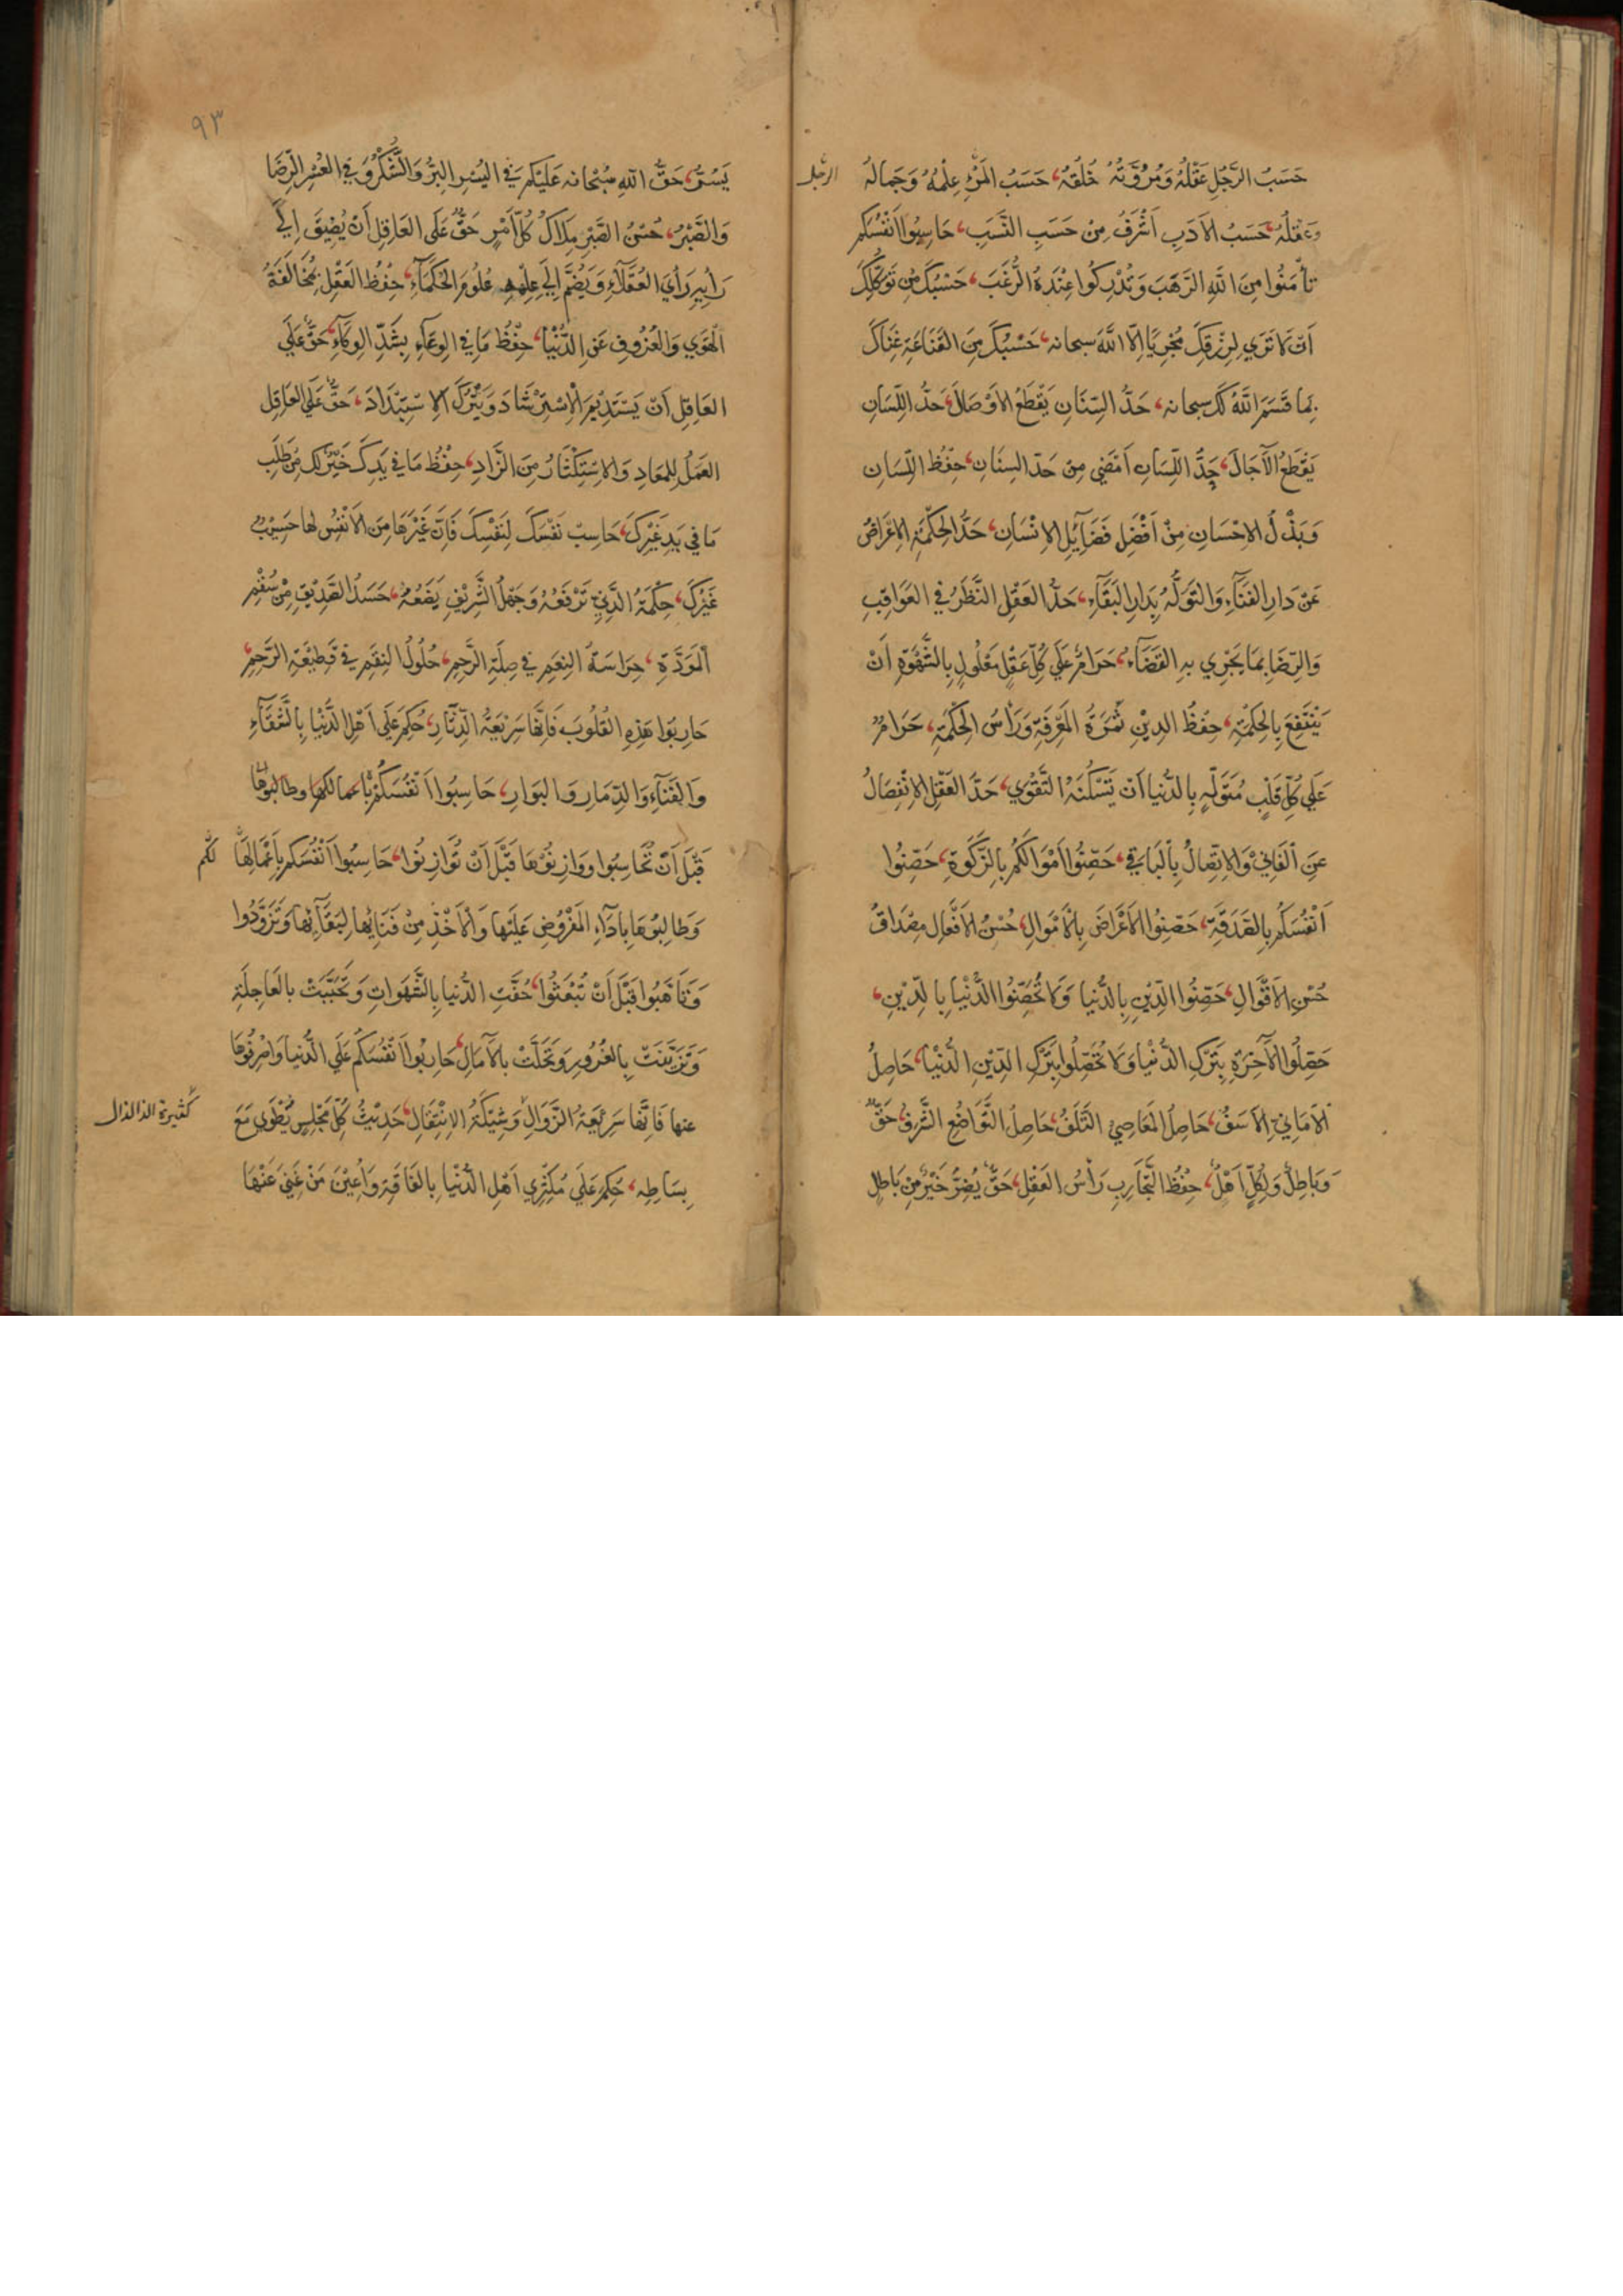 حَسَبُ الرَّجُلِ عَقْلُهُ وَمُرُوَّتُهُ خُلُقُهُ، حَسَبُ المَرْءِ عِلْمُهُ وَجَمَالُهُ
الرجل
وعَقْلُهُ، حَسَبُ الاَدَبِ اَشْرَفُ مِنْ حَسَبِ النَّسَبِ، حَاسِبُوا اَنْفُسَكُمْ
تَأْمَنُوا مِنَ اللَّهِ الرَّهَبَ وَتُدْرِكُوا عِنْدَهُ الرَّغَبَ، حَسْبُكَ مِنْ تَوَكُّلِكَ
اَنْ لَا تَرَي لِرِزْقِكَ مُجْرِيًا اِلَّا اللَّهَ سبحانه، حَسْبُكَ مِنَ القَنَاعَةِ غِنَاكَ
بِمَا قَسَمَ اللَّهُ لَكَ سبحانه، حَدُّ السِّنَانِ يَقْطَعُ الاَوْصَالَ، حَدُّ اللِّسَانِ
يَقْطَعُ الآجَالَ، حَدُّ اللِّسَانِ اَمْضَي مِنْ حَدِّ السِنَانِ، حِفْظُ اللِّسَانِ
وَبَذْلُ الاِحْسَانِ مِنْ اَفْضَلِ فَضَآئِلِ الاِنْسَانِ، حَدُّ الحِكْمَةِ الاِعْرَاضُ
عَنْ دَارِ الفَنَآءِ وَالتَوَلُّهُ بِدَارِ البَقَآءِ، حَدُّ العَقْلِ النَّظَرُ في العَوَاقِبِ
وَالرِّضَا بِمَا يَجْرِي بِهِ القَضَآءُ، حَرَامٌ عَلَي كُلِّ عَقْلٍ مَغْلُولٍ بِالشَّهْوَةِ اَنْ
يَنْتَفِعَ بِالحِكْمَةِ، حِفْظُ الدِيْنِ ثَمَرَةُ المَعْرِفَةِ وَرَأْسُ الحِكْمَةِ، حَرَامٌ
عَلَي كُلِّ قَلْبٍ مُتَوَلِّهٍ بِالدُّنْيا اَنْ يَسْكُنَهُ التَّقْوَي، حَدُّ العَقْلِ الاِنْفِصَالُ
عَنِ الْفَانِيْ وَالاِتِّصَالُ بِالْبَاقِي، حَصِّنُوا اَمْوَالَكُمْ بِالزَّكَوةِ، حَصِّنُوا
اَنْفُسَكُمْ بِالصَدَقَةِ، حَصِّنُوا الاَعْرَاضَ بِالْاَمْوَالِ، حُسْنُ الاَفْعَالِ مِصْدَاقُ
حُسْنِ الاَقْوَالِ، حَصِّنُوا الدِّيْنَ بِالدُّنْيا وَلَا تُحَصِّنُوا الدُّنْيَا بِالدِّيْنِ،
حَصِّلُوا الآخِرَةِ بِتَرْكِ الدُّنْيَا وَلَا تُحَصِّلُوا بِتَرْكِ الدِّيْنِ الدُّنْيَا، حَاصِلُ
الاَمَانِيِّ الاَسَفُ، حَاصِلُ المَعَاصِي التَلَفُ، حَاصِلُ التَّوَاضُعِ الشَّرَفُ، حَقٌّ
وَبَاطِلٌ وَلِكُلٍّ اَهْلٌ، حِفْظُ التَّجَارِبِ رَأْسُ العَقْلِ، حَقٌّ يُضِرُّ خَيْرٌ مِنْ بَاطِلٍ
٩٣
يَسُرُّ، حَقُّ اللهِ سُبْحَانه عَلَيْكُمْ في اليُسْرِ البِرُّ وَالشُّكْرُ وَفي العُسْرِ الرِّضَا
وَالصَّبْرُ، حُسْنُ الصَّبْرِ مِلَاكُ كُلِّ اَمْرٍ حَقٌّ عَلَى العَاقِلِ اَنْ يُضِيْفَ اِلَي
رَأْيِهِ رَأْيَ العُقَلَآءِ وَيَضُمَّ اِلَي عِلْمِهِ عُلُومَ الحُكَمَآءِ، حِفْظُ العَقْلِ بِمُخَالَفَةِ
الْهَوَي وَالعُزُوفِ عَنِ الدُّنْيَا، حِفْظُ مَا في الوِعَآءِ بِشَدِّ الوِكَآءِ، حَقٌّ عَلَي
العَاقِلِ اَنْ يَسْتَدِيْمَ الْاِسْتِرْشَادَ وَيَتْرُكَ الاِسْتِبْدَادَ، حَقٌّ عَلَي العَاقِلِ
العَمَلُ لِلمَعَادِ وَالاِسْتِكْثَارُ مِنَ الزَّادِ، حِفْظُ مَا في يَدِكَ خَيْرٌ لَكَ مِنْ طَلَبِ
مَا في يَدِ غَيْرِكَ، حَاسِبْ نَفْسَكَ لِنَفْسِكَ فَاِنَّ غَيْرَهَا مِنَ الاَنْفُسِ لها حَسِيْبٌ
غَيْرُكَ، حِكْمَةُ الدَّنِيِّ تَرْفَعُهُ وَجَهْلُ الشَّرِيْفِ يَضَعُهُ، حَسَدُ الصَّدِيْقِ مِنْ سُقْمِ
الْمَوَدَّةِ، حِرَاسَةُ النِعَمِ في صِلَةِ الرَّحِمِ، حُلُولُ النِقَمِ في قَطِيْعَةِ الرَّحِمِ،
حَارِبُوا هَذِهِ القُلُوبَ فَاِنَّهَا سَرِيْعَةُ الدِّثَارِ، حُكِمَ عَلَي اَهْلِ الدُّنْيَا بِالشَّقَآءِ
وَالفَنَآءِ وَالدِّمَارِ وَالبَوَارِ، حَاسِبُوا اَنْفُسَكُمْ بِاَعمالكم وطالبوها
قَبْلَ اَنْ تُحَاسَبُوا ووَازِنُوْهَا قَبْلَ اَنْ تُوَازَنُوا، حَاسِبُوا اَنْفُسَكُمْ بِاَعْمَالِهَا
وَطَالِبُوْهَا بِاَدَآءِ المَفْرُوضِ عَلَيْها وَالْاَخْذِ مِنْ فَنَائِها لِبَقَآئِها وَتَزَوَّدُوا
وَتَأَهَّبُوا قَبْلَ اَنْ تُبْعَثُوا، حُفَّتِ الدُّنْيا بِالشَّهَوَاتِ وَتَحَبَّبَتْ بالعَاجِلَةِ
وَتَزَيَّنَتْ بِالغُرُورِ وَتَحَلَّتْ بالآمَالِ، حَارِبُوا اَنْفُسَكُمْ عَلَي الدُّنْيا وَاصْرِفُوها
عنها فَاِنَّها سَرِيْعَةُ الزَّوَالِ وَشِيْكَةُ الاِنْتِقَالِ، حَدِيْثُ كُلِّ مَجْلِسٍ يُطْوَي مَعَ
كثيرة الزلزال
بِسَاطِهِ، حُكِمَ عَلَي مُكْثِرِي اَهْلِ الدُّنْيَا بِالفَاقَةِ وَاُعِيْنَ مَنْ غَنِيَ عَنْهَا